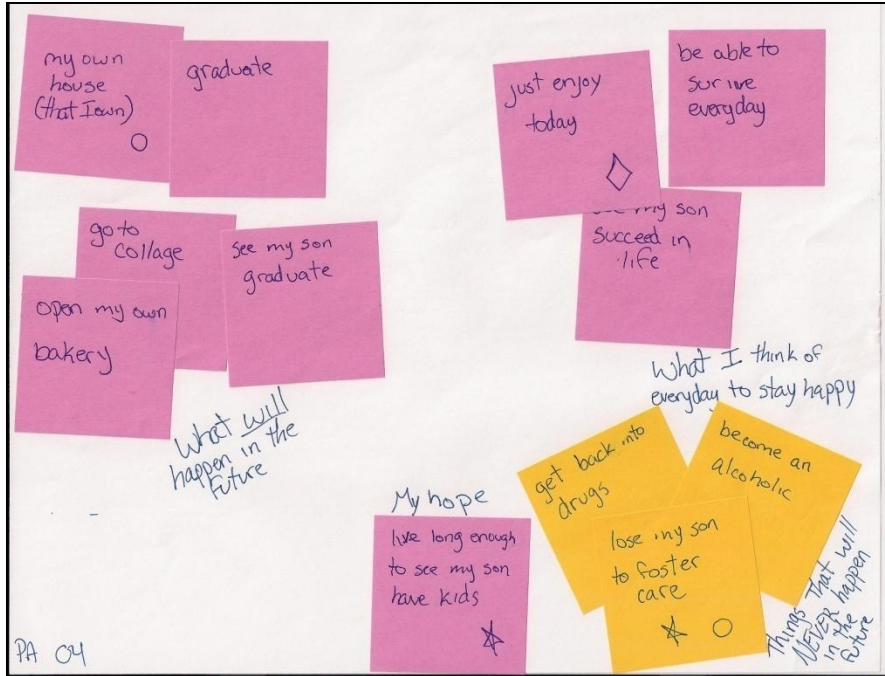 my own
house
(that I own)
graduate
go to
collage
see my son
graduate
open my own
bakery
What will
happen in the
future
just enjoy
today
be able to
survive
everyday
my son
succeed in
life
What I think of
everyday to stay happy
My hope
live long enough
to see my son
have kids
get back into
drugs
become an
alcoholic
lose my son
to foster
care
Things that will
NEVER happen
in the
future
PA 04